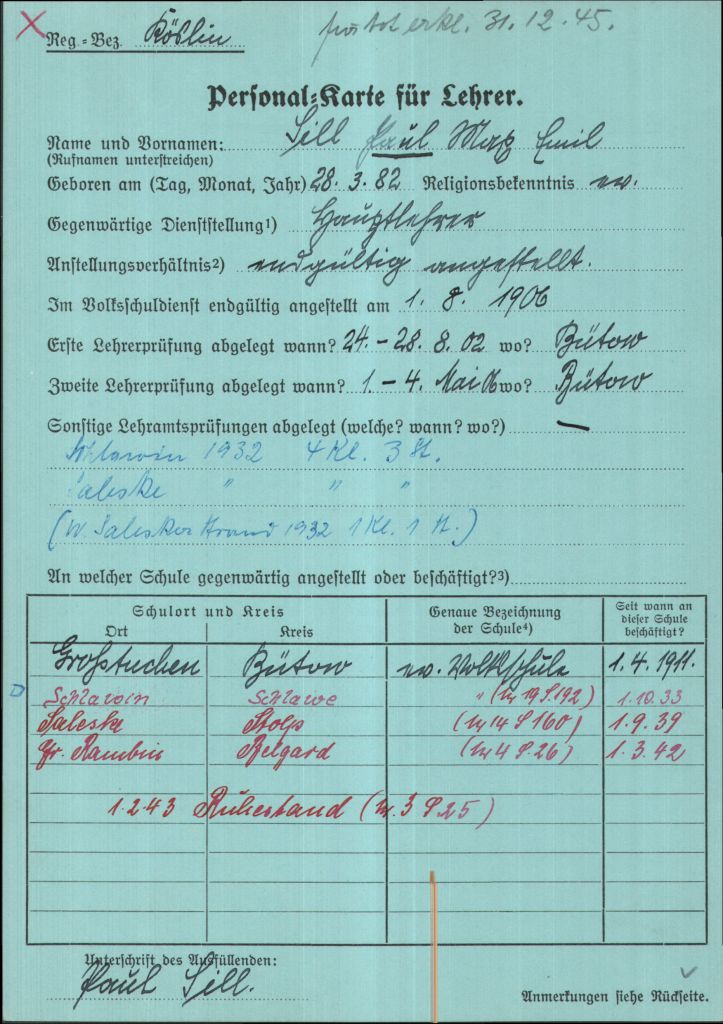 Reg.=Bez. Köslin
erkl. 31.12.45.
Personal=Karte für Lehrer.
Name und Vornamen: Sill Paul Max Emil
(Rufnamen unterstreichen)
Geboren am (Tag, Monat, Jahr) 28.3.82 Religionsbekenntnis ev.
Gegenwärtige Dienststellung¹) Hauptlehrer
Anstellungsverhältnis²) endgültig angestellt.
Im Volksschuldienst endgültig angestellt am 1. 8. 1906
Erste Lehrerprüfung abgelegt wann? 24.-28. 8. 02 wo? Bütow
Zweite Lehrerprüfung abgelegt wann? 1.-4. Mai 06 wo? Bütow
Sonstige Lehramtsprüfungen abgelegt (welche? wann? wo?) —
Schlawin 1932 4 Kl. 3 St.
Saleske " " "
(W. Salesker Strand 1932 1 Kl. 1 St.)
An welcher Schule gegenwärtig angestellt oder beschäftigt?³)
Schulort und Kreis Genaue Bezeichnung der Schule⁴) Seit wann an dieser Schule beschäftigt?
Ort Kreis
Großtuchen Bütow ev. Volksschule 1.4.1911.
Schlawin Schlawe " (19 S. 192) 1.10.33
Saleske Stolp (14 S. 160) 1.9.39
Gr. Rambin Belgard (4 S. 26) 1.3.42
1.2.43 Ruhestand (3 S. 25)
Unterschrift des Ausfüllenden:
Paul Sill.
Anmerkungen siehe Rückseite.